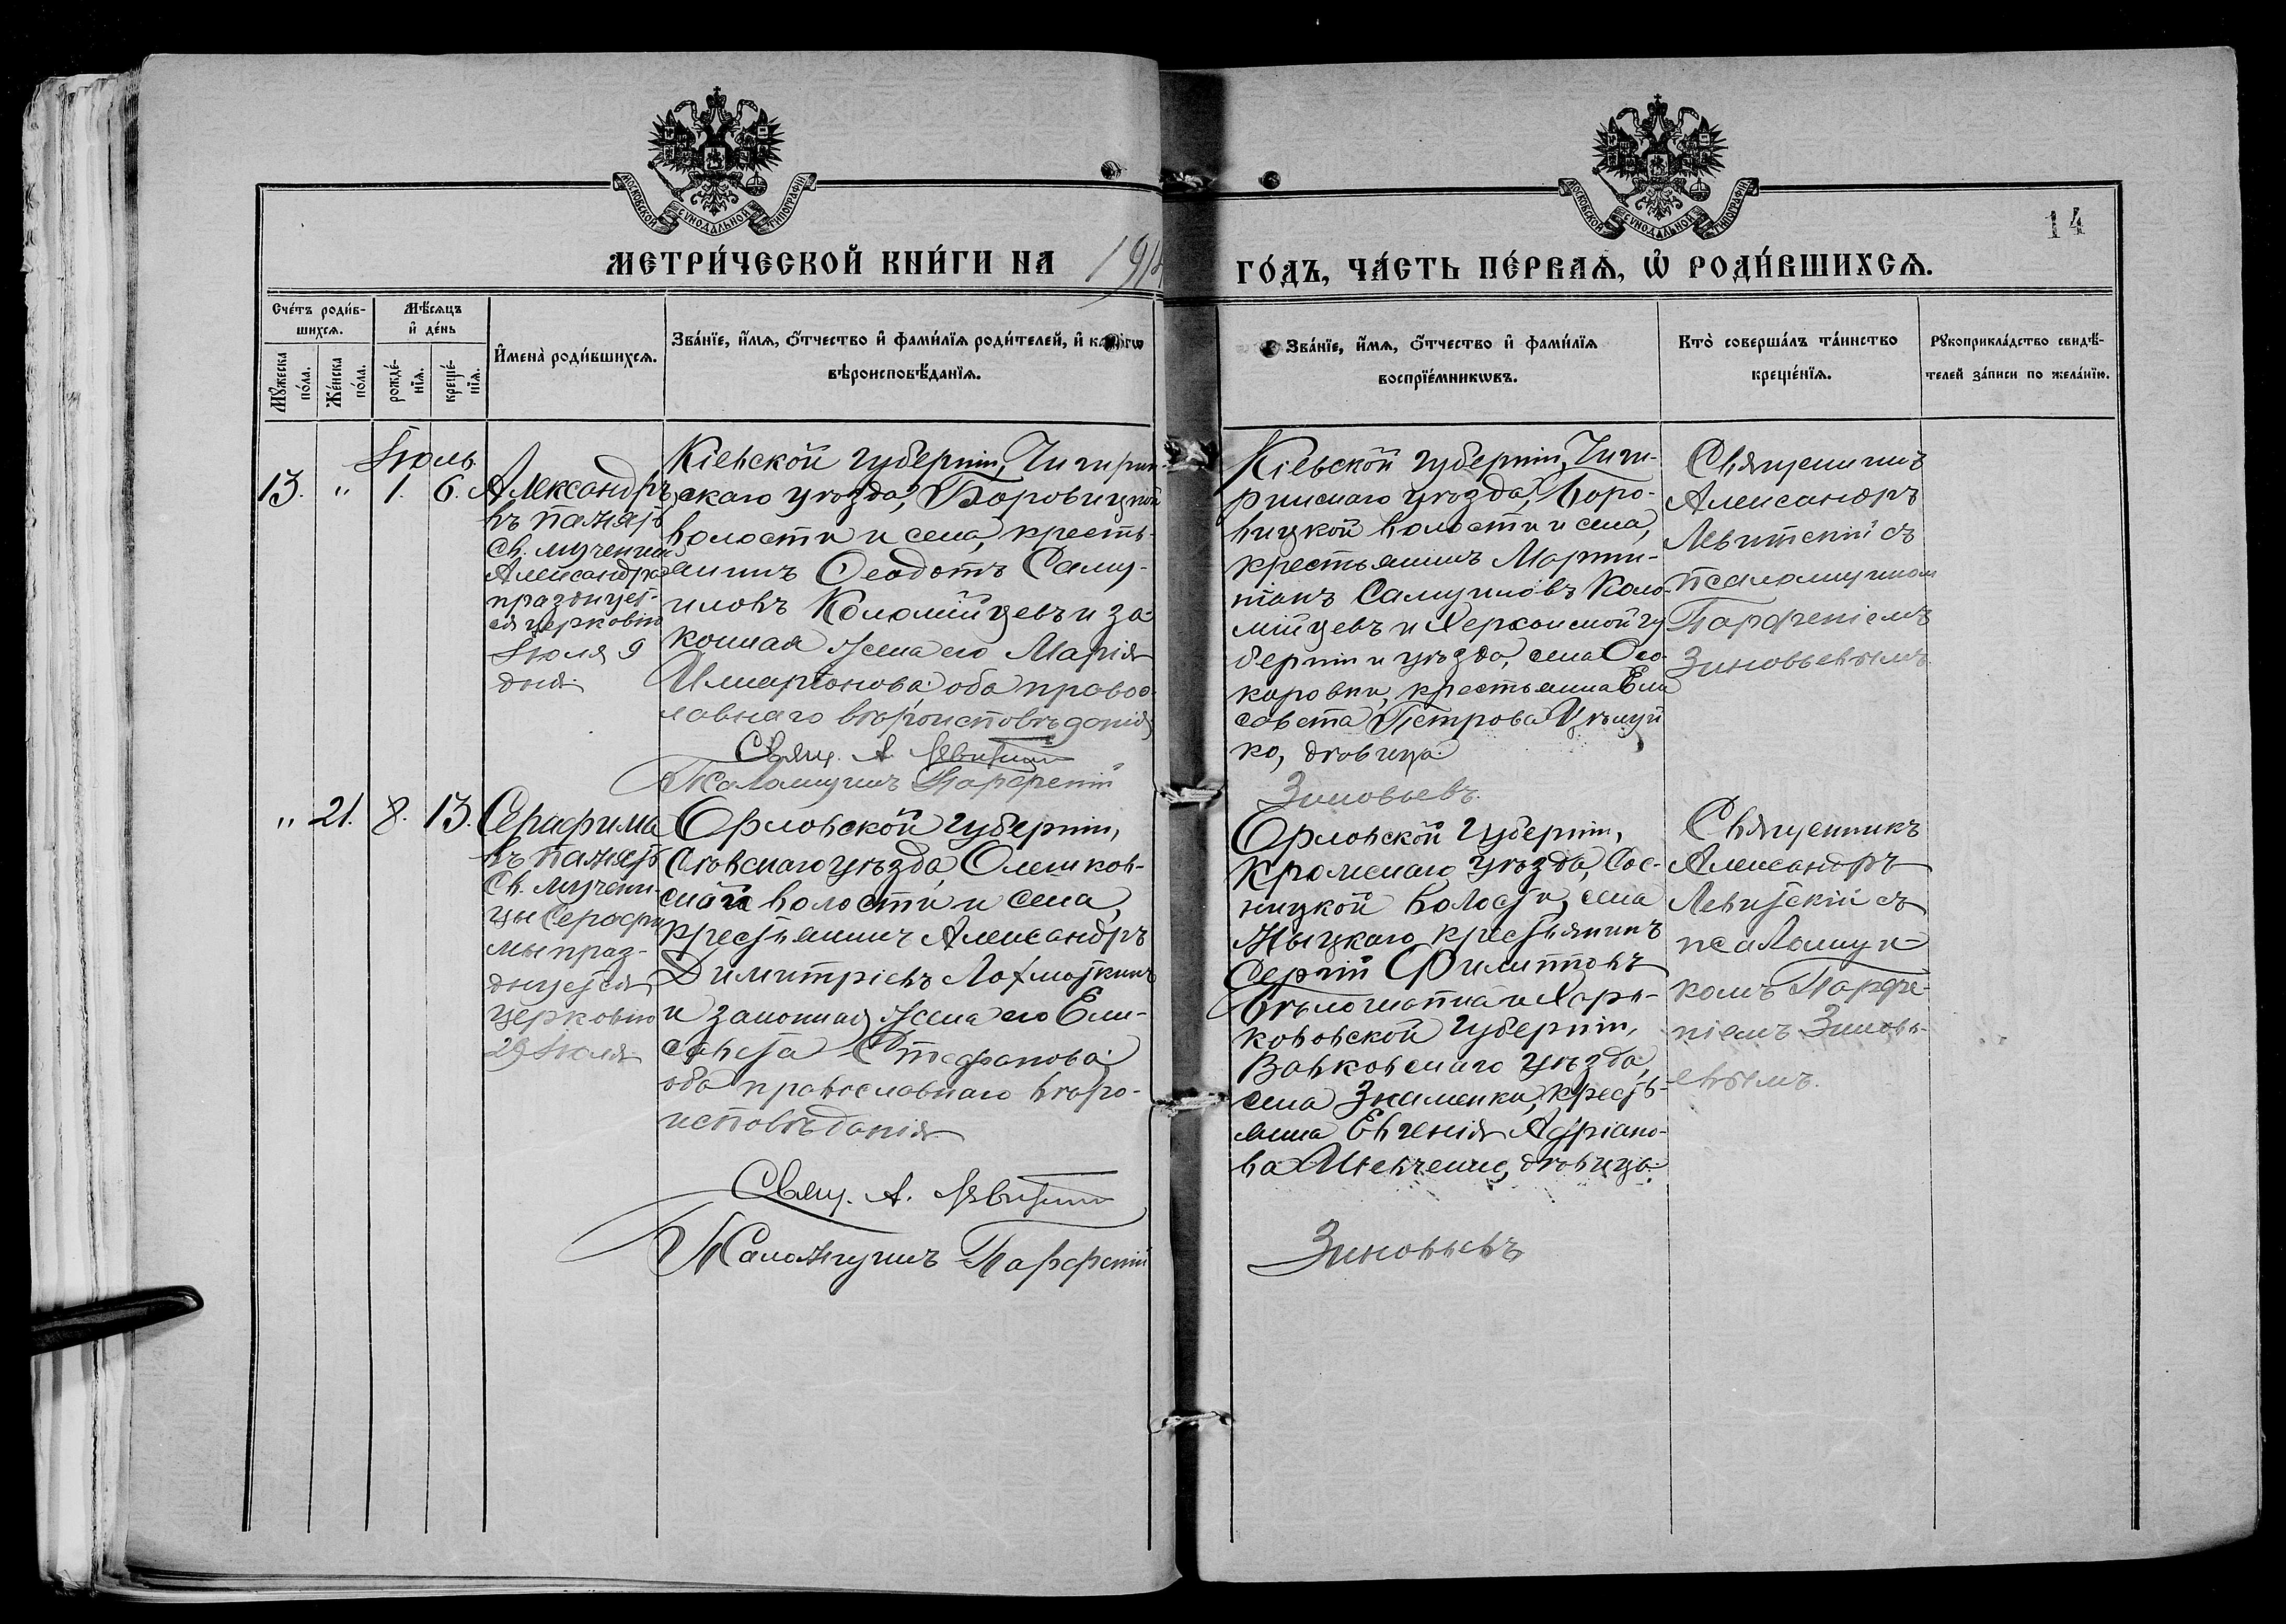 МОСКОВСКОЙ СУНОДАЛЬНОЙ ТИПОГРАФІИ
МОСКОВСКОЙ СУНОДАЛЬНОЙ ТИПОГРАФІИ
14
МЕТРИ́ЧЕСКОЙ КНИ́ГИ НА 191
ГО́ДЪ, ЧА́СТЬ ПЕ́РВАѦ, Ѡ҆ РОДИ́ВШИХСѦ.
Сче́тъ роди́в-
шихсѧ.
Мѣ́сѧцъ
и҆ де́нь
Мꙋ́жеска по́ла.
Же́нска по́ла.
рожде́-
нїѧ.
креще́-
нїѧ.
И҆мена̀ роди́вшихсѧ.
Зва́нїе, и҆́мѧ, ѻ҆́тчество и҆ фами́лїѧ роди́телей, и҆
вѣроисповѣ́данїѧ.
Зва́нїе, и҆́мѧ, ѻ҆́тчество и҆ фами́лїѧ
воспрїе́мникѡвъ.
Кто̀ соверша́лъ та́инство
креще́нїѧ.
Рꙋкоприкла́дство свидѣ́-
телей за́писи по жела́нїю.
Іюль.
13. " 1. 6.
Александръ
въ память
св. мученика
Александра
празднует-
ся церковію
Іюля 9
дня.
Кіевской губерніи, Чигирин-
скаго уѣзда, Боровицкой
волости и села, кресть-
янинъ Ѳеодотъ Саму-
иловъ Коломійцевъ и за-
конная жена его Марія
Иларіонова: оба правос-
лавнаго вѣроисповѣданія
Свящ. А. Левитскій
Псаломщикъ Парфеній
Кіевской губерніи, Чиги-
ринскаго уѣзда, Боро-
вицкой волости и села,
крестьянинъ Марти-
ніанъ Самуиловъ Коло-
мійцевъ и Херсонской гу
берніи и уѣзда, села
крестьянка Ели
савета Петрова
ко, дѣвица.
Зиновьевъ.
Священникъ
Александръ
Левитскій съ
псаломщикомъ
Парфеніемъ
Зиновьевымъ.
" 21. 8. 13.
Серафима
въ память
св. мучени-
цы Серафи
мы праз-
днуется
церковію
29 Іюля
Орловской губерніи,
Сѣвскаго уѣзда, Олешков-
ской волости и села,
крестьянинъ Александръ
Димитріевъ Лохмоткинъ
и законная жена его Ели-
савета Стефанова:
оба православнаго вѣро-
исповѣданія
Свящ. А. Левитскій
Псаломщикъ Парфеній
Орловской губерніи,
Кромскаго уѣзда, Сос-
ницкой волости, села
крестьянинъ
Сергій Филипповъ
и Харь-
ковской губерніи,
Валковскаго уѣзда,
села Знаменки, кресть-
янка Евгенія Адріано-
ва Шевченко, дѣвица.
Зиновьевъ
Священникъ
Александръ
Левитскій съ
псаломщи-
комъ Парфе-
ніемъ Зиновь-
евымъ.